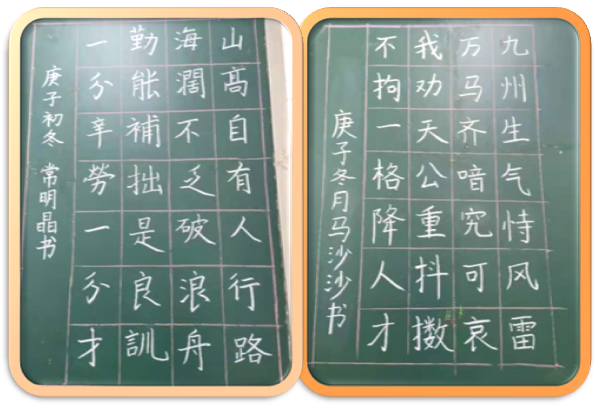 山髙自有人行路
海濶不乏破浪舟
勤能補拙是良訓
一分辛勞一分才
庚子初冬 常明晶书
九州生气恃风雷
万马齐喑究可哀
我劝天公重抖擞
不拘一格降人才
庚子冬月马沙沙书